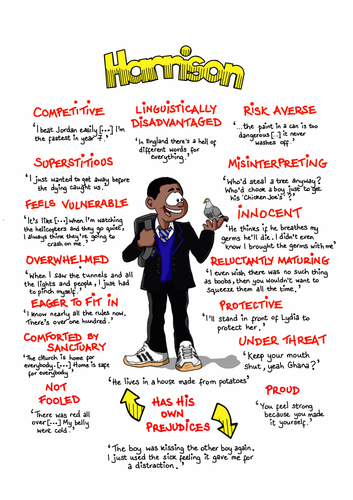 Harrison
COMPETITIVE
'I beat Jordan easily [...] I'm
the fastest in year 7.'
LINGUISTICALLY
DISADVANTAGED
'In England there's a hell of
different words for
everything.'
RISK AVERSE
'...the paint in a can is too
dangerous [..] it never
washes off.'
SUPERSTITIOUS
'I just wanted to get away before
the dying caught us.'
MISINTERPRETING
'Who'd steal a tree anyway?
Who'd chook a boy just to get
his 'Chicken Joe's'?'
FEELS VULNERABLE
'It's like [...] when I'm watching
the helicopters and they go quiet,
I always think they're going to
crash on me.'
INNOCENT
'He thinks if he breathes my
germs he'll die. I didn't even
know I brought the germs with me'
OVERWHELMED
'When I saw the tunnels and all
the lights and people, I just had
to pinch myself.'
RELUCTANTLY MATURING
'I even wish there was no such thing
as boobs, then you wouldn't want to
squeeze them all the time.'
EAGER TO FIT IN
'I know nearly all the rules now.
There's over one hundred.'
PROTECTIVE
'I'll stand in front of Lydia to
protect her.'
COMFORTED BY
SANCTUARY
'The church is home for
everybody. [...] Home is safe
for everybody'
UNDER THREAT
'Keep your mouth
shut, yeah Ghana?'
'He lives in a house made from potatoes'
NOT
FOOLED
'There was red all
over [...] My belly
went cold.'
HAS HIS
OWN
PREJUDICES
'The boy was kissing the other boy again.
I just used the sick feeling it gave me for
a distraction.'
PROUD
'You feel strong
because you made
it yourself.'